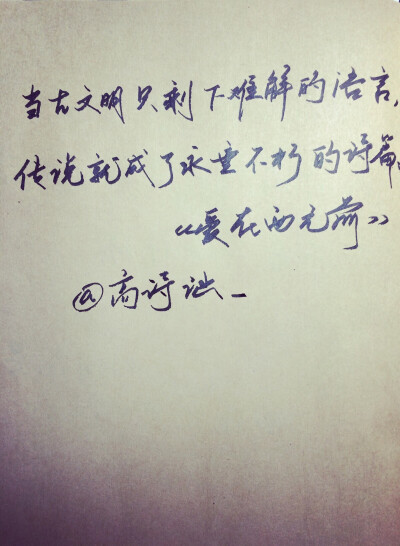 当古文明只剩下难解的语言,
传说就成了永垂不朽的诗篇。
《爱在西元前》
@高诗汕_